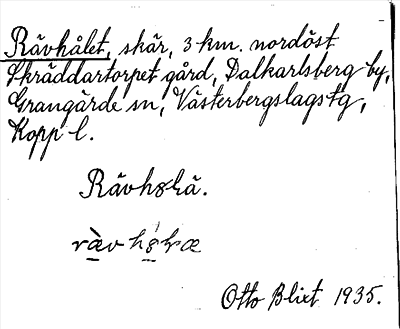 Rävhålet, skär, 3 km. nordöst
Skräddartorpet gård, Dalkarlsberg by,
Grangärde sn, Västerbergslags tg,
Kopp l.
Rävhȣlä.
Otto Blixt 1935.